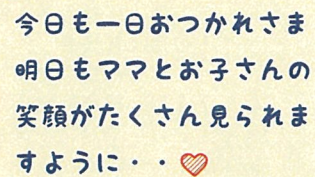 今日も一日おつかれさま
明日もママとお子さんの
笑顔がたくさん見られま
すように・・♡